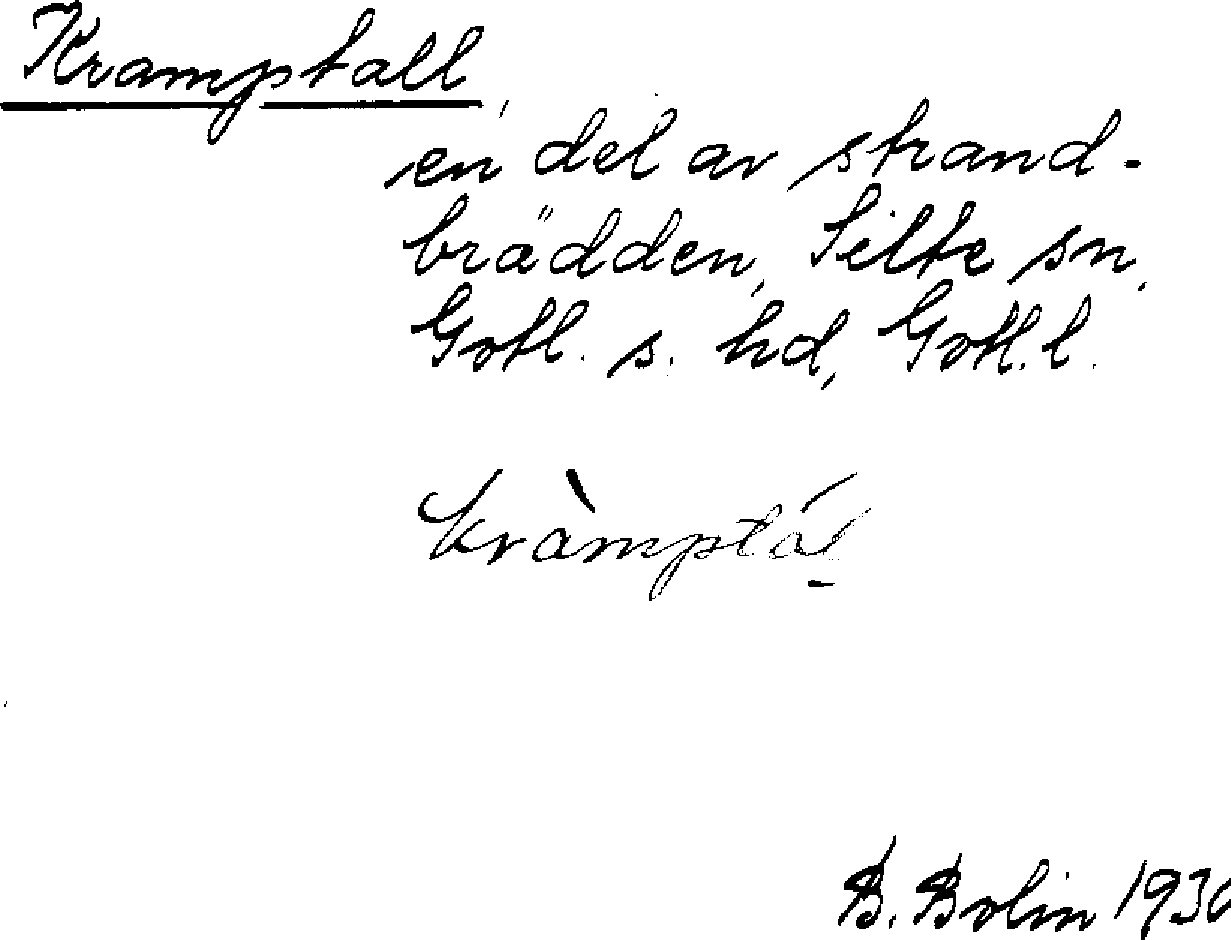 Kramptall,
en del av strand-
brädden, Silte sn,
Gotl. s. hd, Gotl. l.
kràmptál
B. Bolin 1930